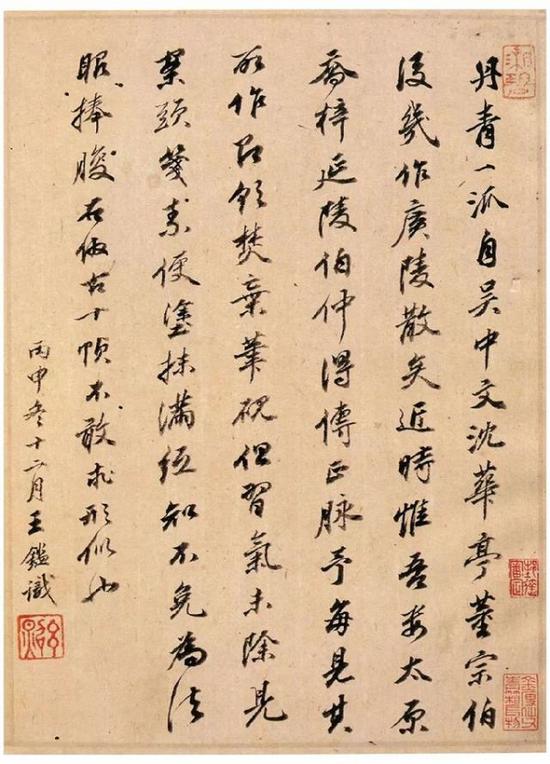 丹青一派自吴中文沈華亭董宗伯
後幾作廣陵散矣近時惟吾婁太原
喬梓延陵伯仲得傳正脉予每見其
所作即欲焚棄筆硯但習氣未除見
案頭箋素便塗抹滿紙知不免為法
眼捧腹右倣古十幀不敢求形似也
丙申冬十二月王鑑識